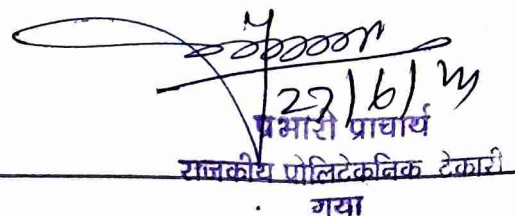 27/6/
प्रभारी प्राचार्य
राजकीय पोलिटेकनिक टेकारी
गया